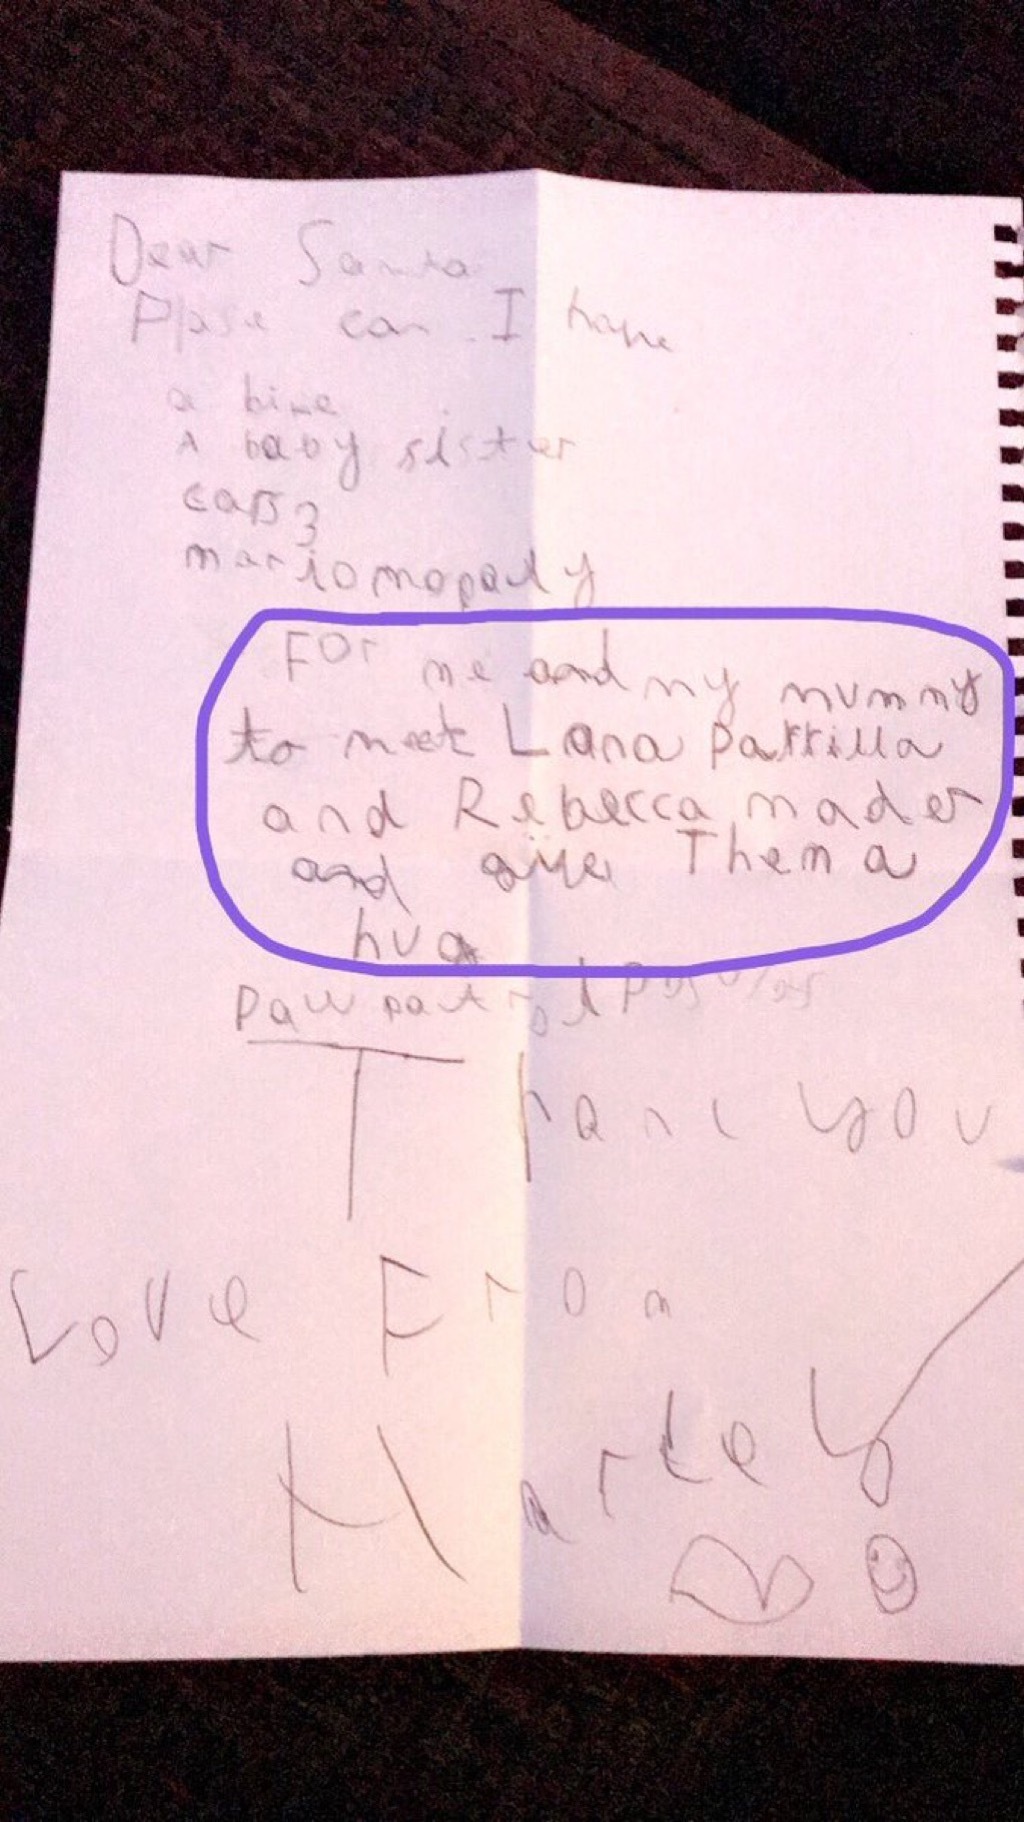 Dear Santa
Plase can I have
a bike
A baby sister
cars 3
mario mopoly
For me and my mummy
to meet Lana Parrilla
and Rebecca mader
and give Them a
hug
Paw patrol
Thank you
Love From
Harley